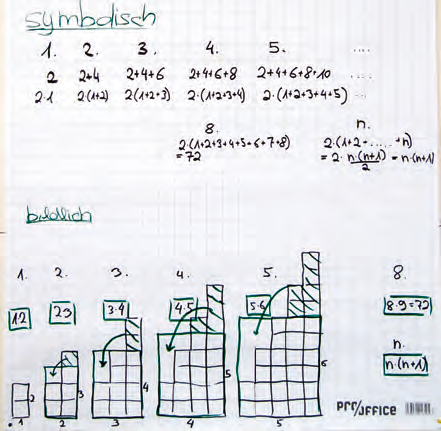 symbolisch
1. 2. 3. 4. 5. ....
2 2+4 2+4+6 2+4+6+8 2+4+6+8+10 ....
2·1 2·(1+2) 2(1+2+3) 2·(1+2+3+4) 2·(1+2+3+4+5) ....
8. n.
2·(1+2+3+4+5+6+7+8) 2·(1+2+.....+n)
=72 = 2· n·(n+1)/2 = n·(n+1)
bildlich
1. 2. 3. 4. 5. 8.
1·2 2·3 3·4 4·5 5·6 8·9=72
n.
n·(n+1)
2 3 4 5 6
1 2 3 4 5
PRO/OFFICE